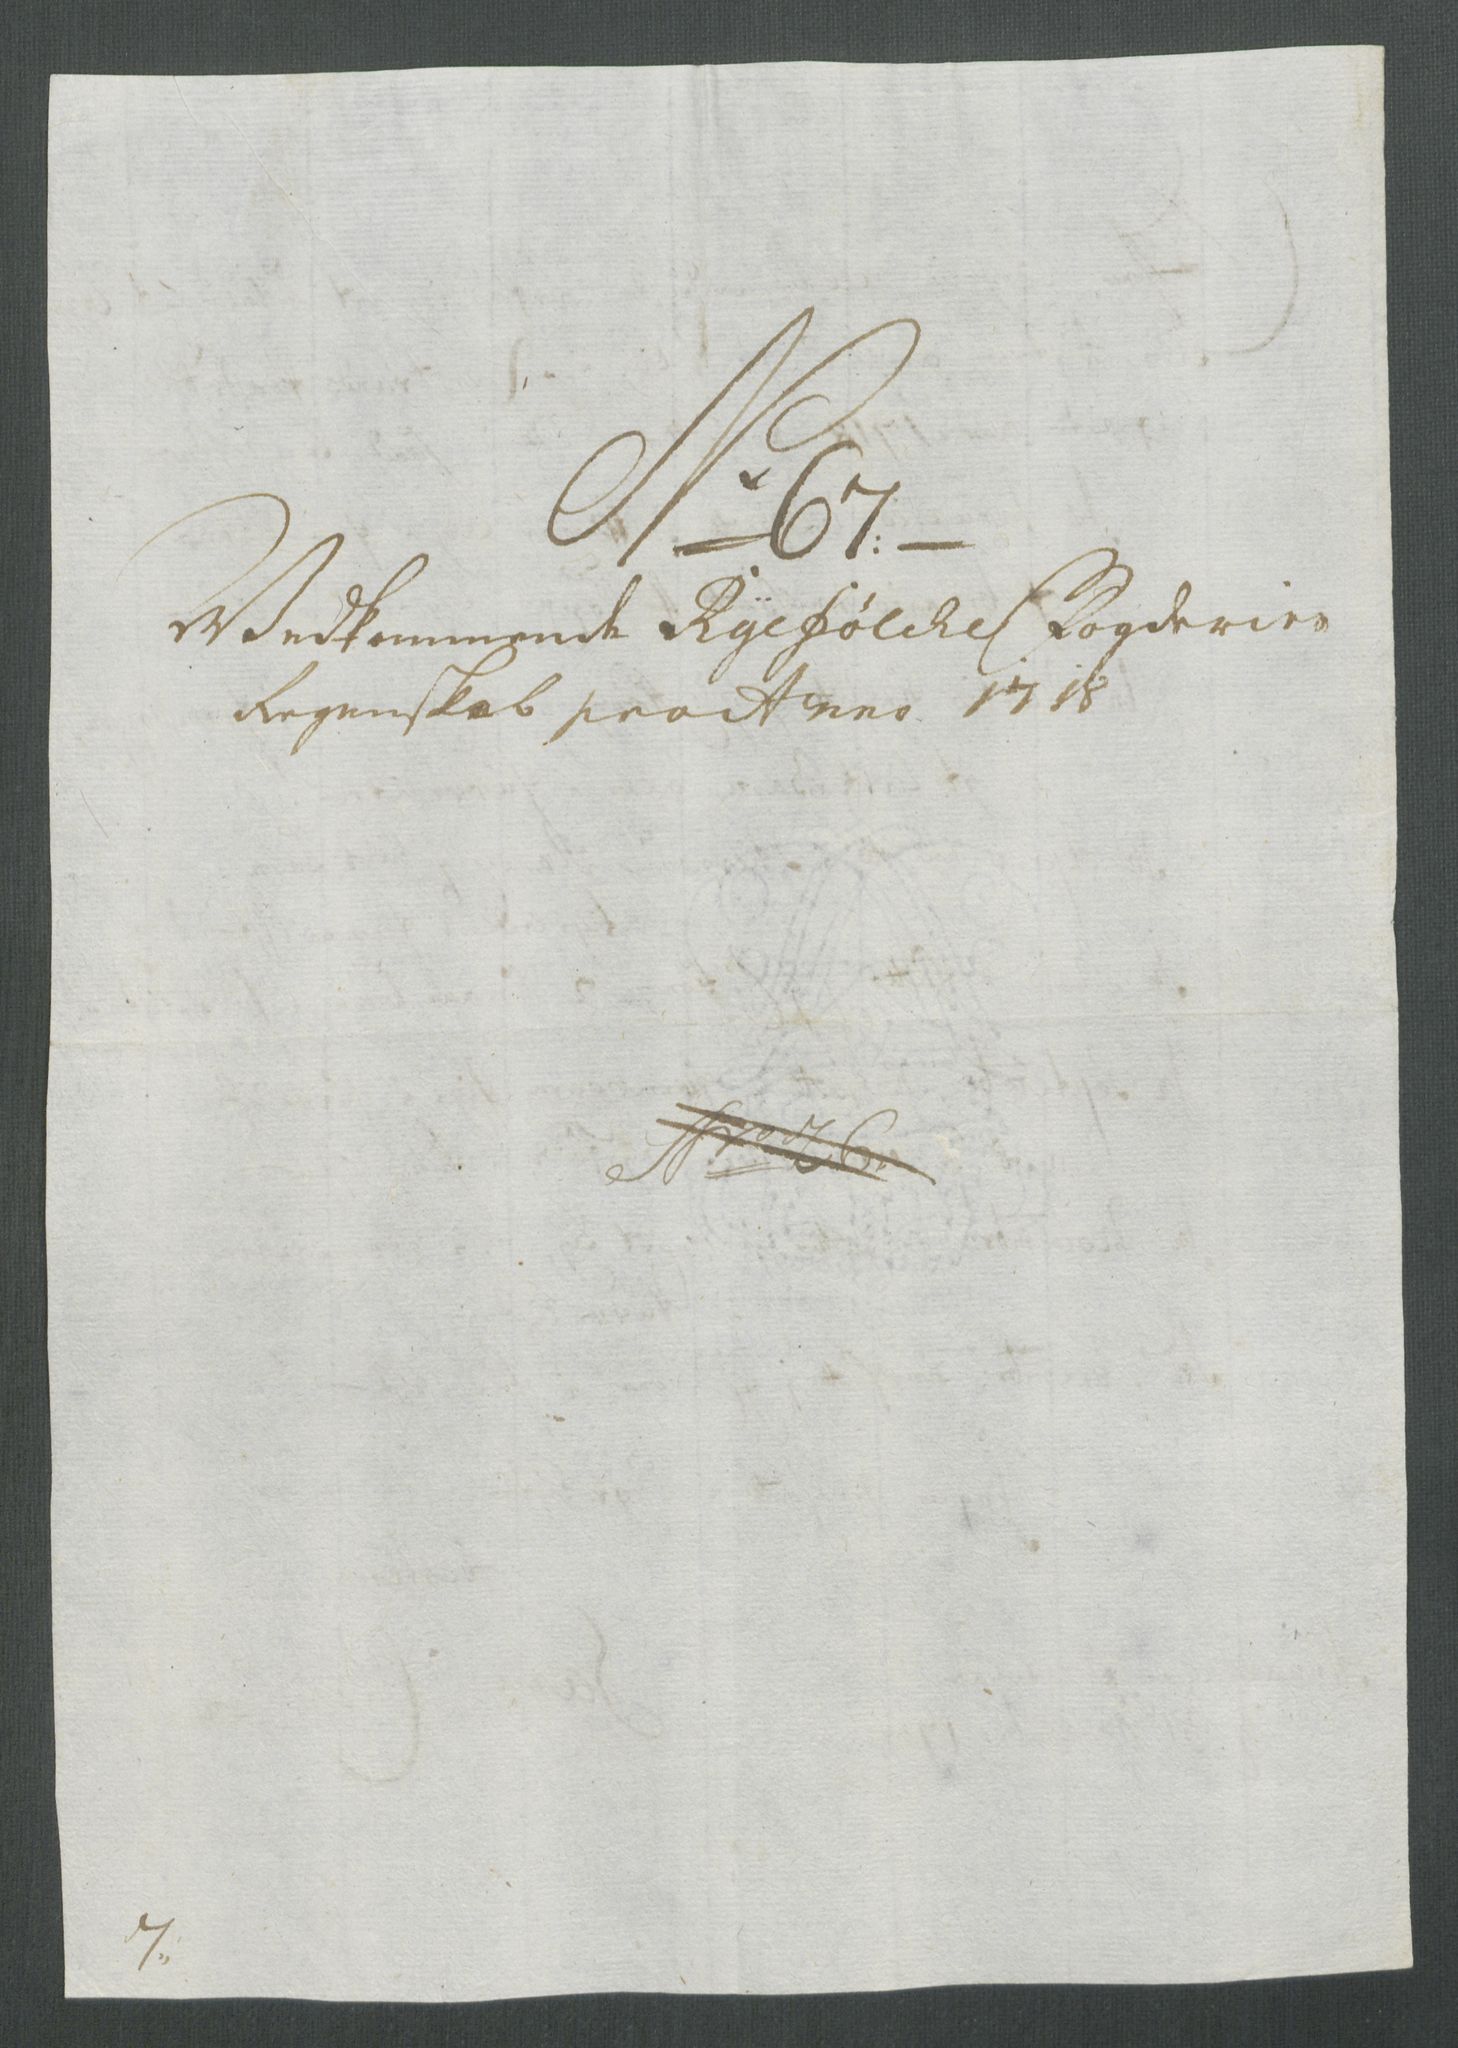 No 67:
Vedkommende Ryefölckes Fogderies
Regenskab pro Anno 1718
No 76.
7.